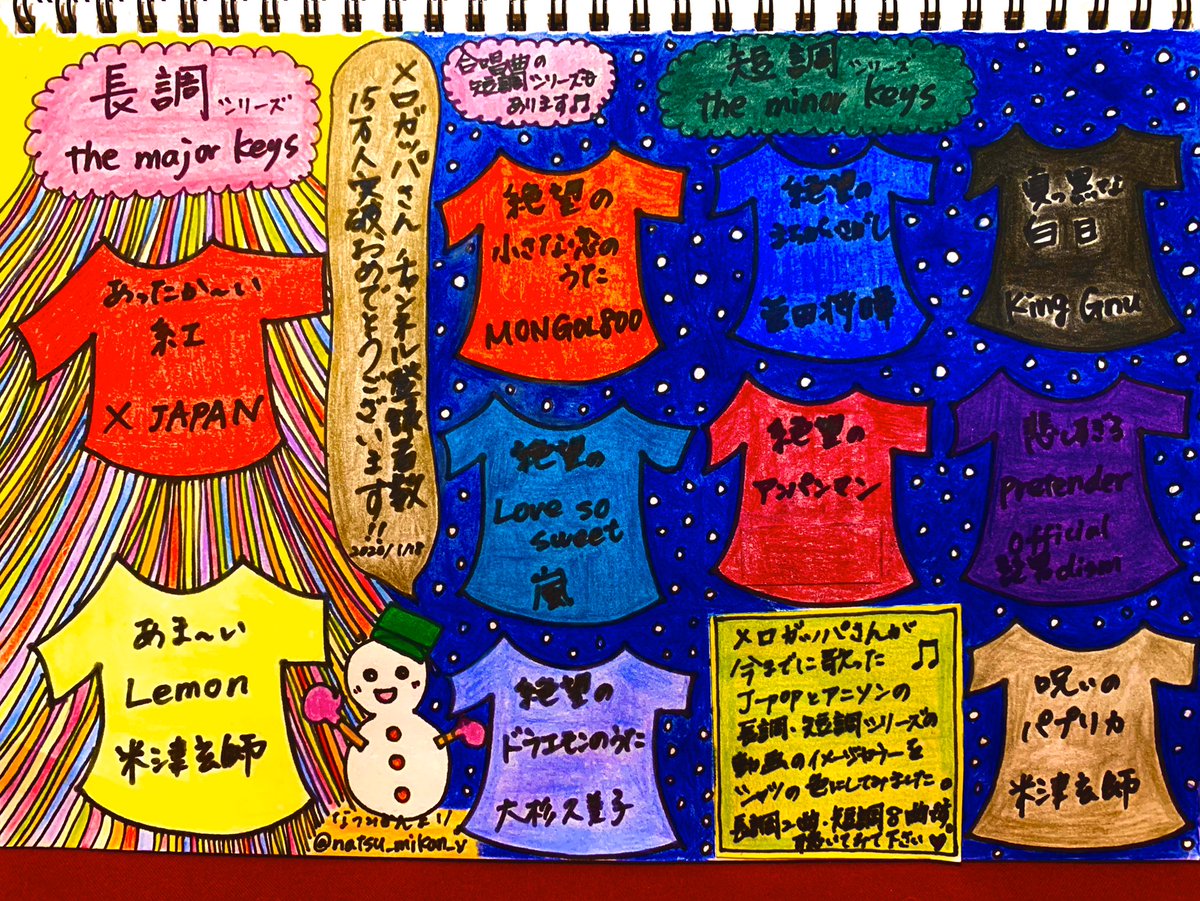 長調シリーズ
the major keys
あったか〜い
紅
X JAPAN
あま〜い
Lemon
米津玄師
メロガッパさん チャンネル登録者数
15万人突破おめでとうございます!!
2020/1/18
なつみかんより
@natsu_mikan_y
合唱曲の
短調シリーズも
あります♫
短調シリーズ
the minor keys
絶望の
小さな恋の
うた
MONGOL800
絶望の
まちがいさがし
菅田将暉
真っ黒な
白日
King Gnu
絶望の
Love so
sweet
嵐
絶望の
アンパンマン
悲しすぎる
Pretender
Official
髭男dism
絶望の
ドラエモンのうた
大杉久美子
メロガッパさんが
今までに歌った
J-POPとアニソンの
長調・短調シリーズの
動画のイメージカラーを
シャツの色にしてみました。
長調2曲・短調8曲
聴いてみて下さい♥
呪いの
パプリカ
米津玄師